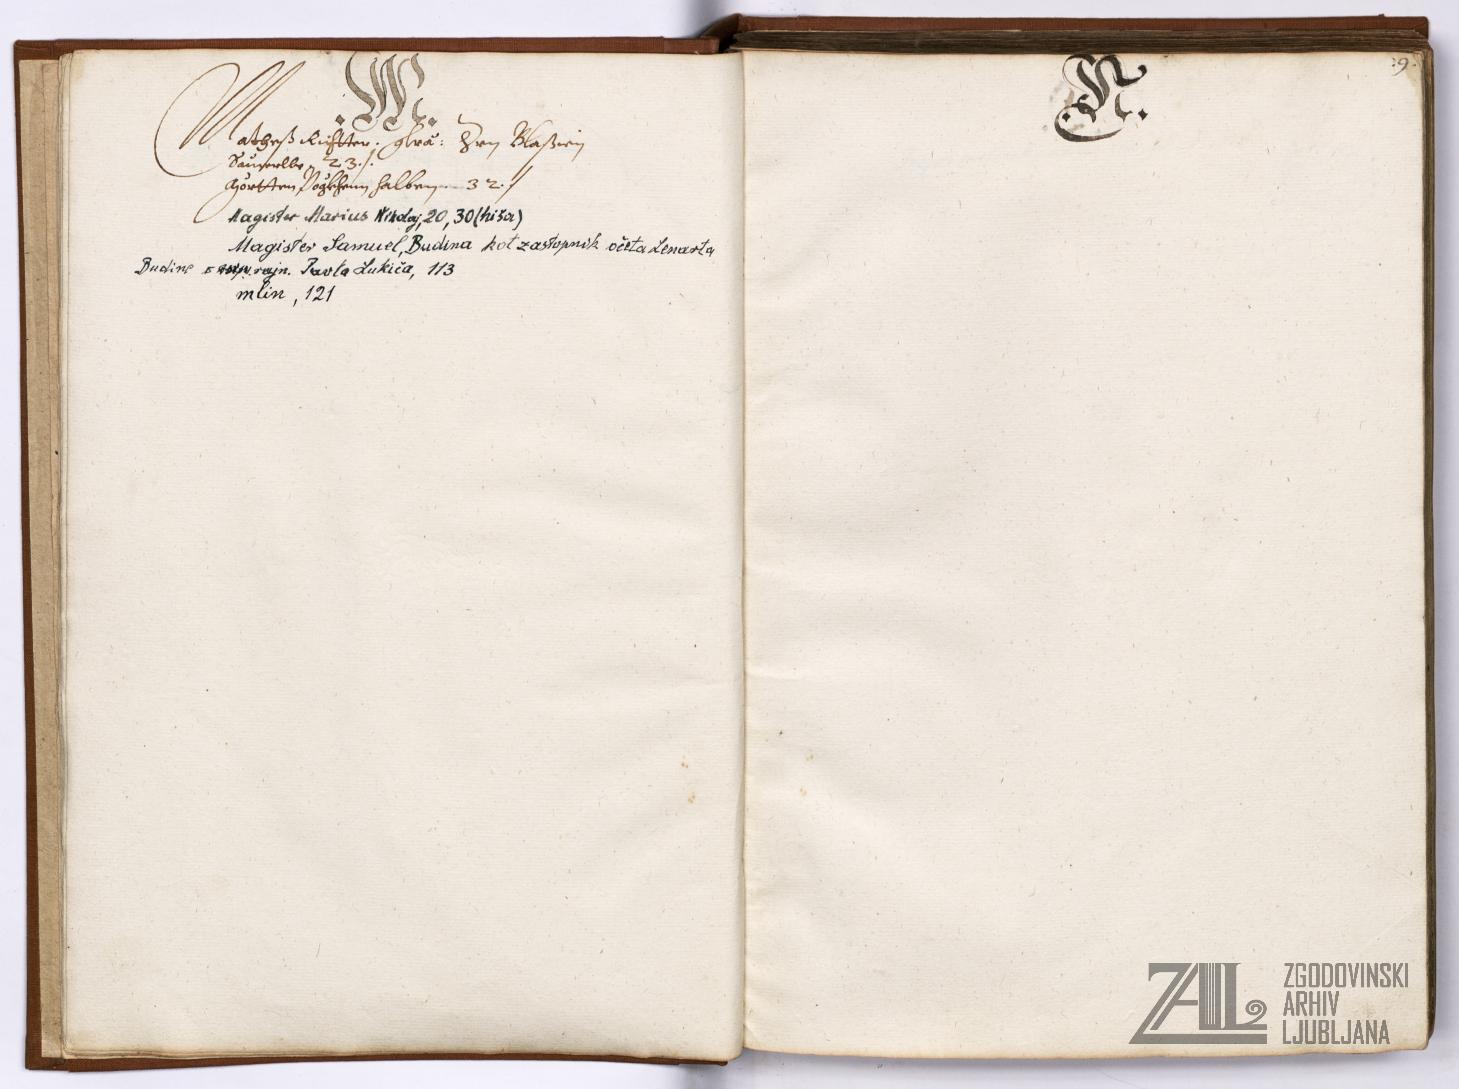 .M.
Mathess Richter.
23./.
halben 32./
Magister Marius Nikolaj, 20, 30 (hiša)
Magister Samuel, Budina kot zastopnik očeta Lenarta
Budine rajn. Pavla Lukiča, 113
mlin, 121
N.
9.
ZAL ZGODOVINSKI
ARHIV
LJUBLJANA